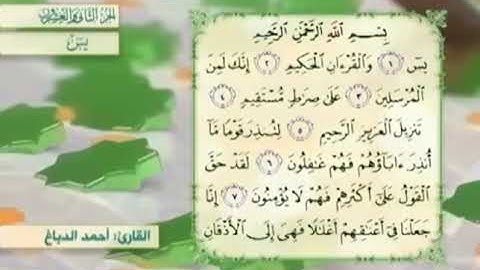 الجزء الثاني والعشرون
يسٓ
بِسْمِ اللَّهِ الرَّحْمَٰنِ الرَّحِيمِ
يسٓ ١ وَالْقُرْءَانِ الْحَكِيمِ ٢ إِنَّكَ لَمِنَ
الْمُرْسَلِينَ ٣ عَلَىٰ صِرَٰطٍ مُّسْتَقِيمٍ ٤
تَنزِيلَ الْعَزِيزِ الرَّحِيمِ ٥ لِتُنذِرَ قَوْمًا مَّآ
أُنذِرَ ءَابَآؤُهُمْ فَهُمْ غَٰفِلُونَ ٦ لَقَدْ حَقَّ
الْقَوْلُ عَلَىٰٓ أَكْثَرِهِمْ فَهُمْ لَا يُؤْمِنُونَ ٧ إِنَّا
جَعَلْنَا فِىٓ أَعْنَٰقِهِمْ أَغْلَٰلًا فَهِىَ إِلَى الْأَذْقَانِ
القارئ: أحمد الدباغ